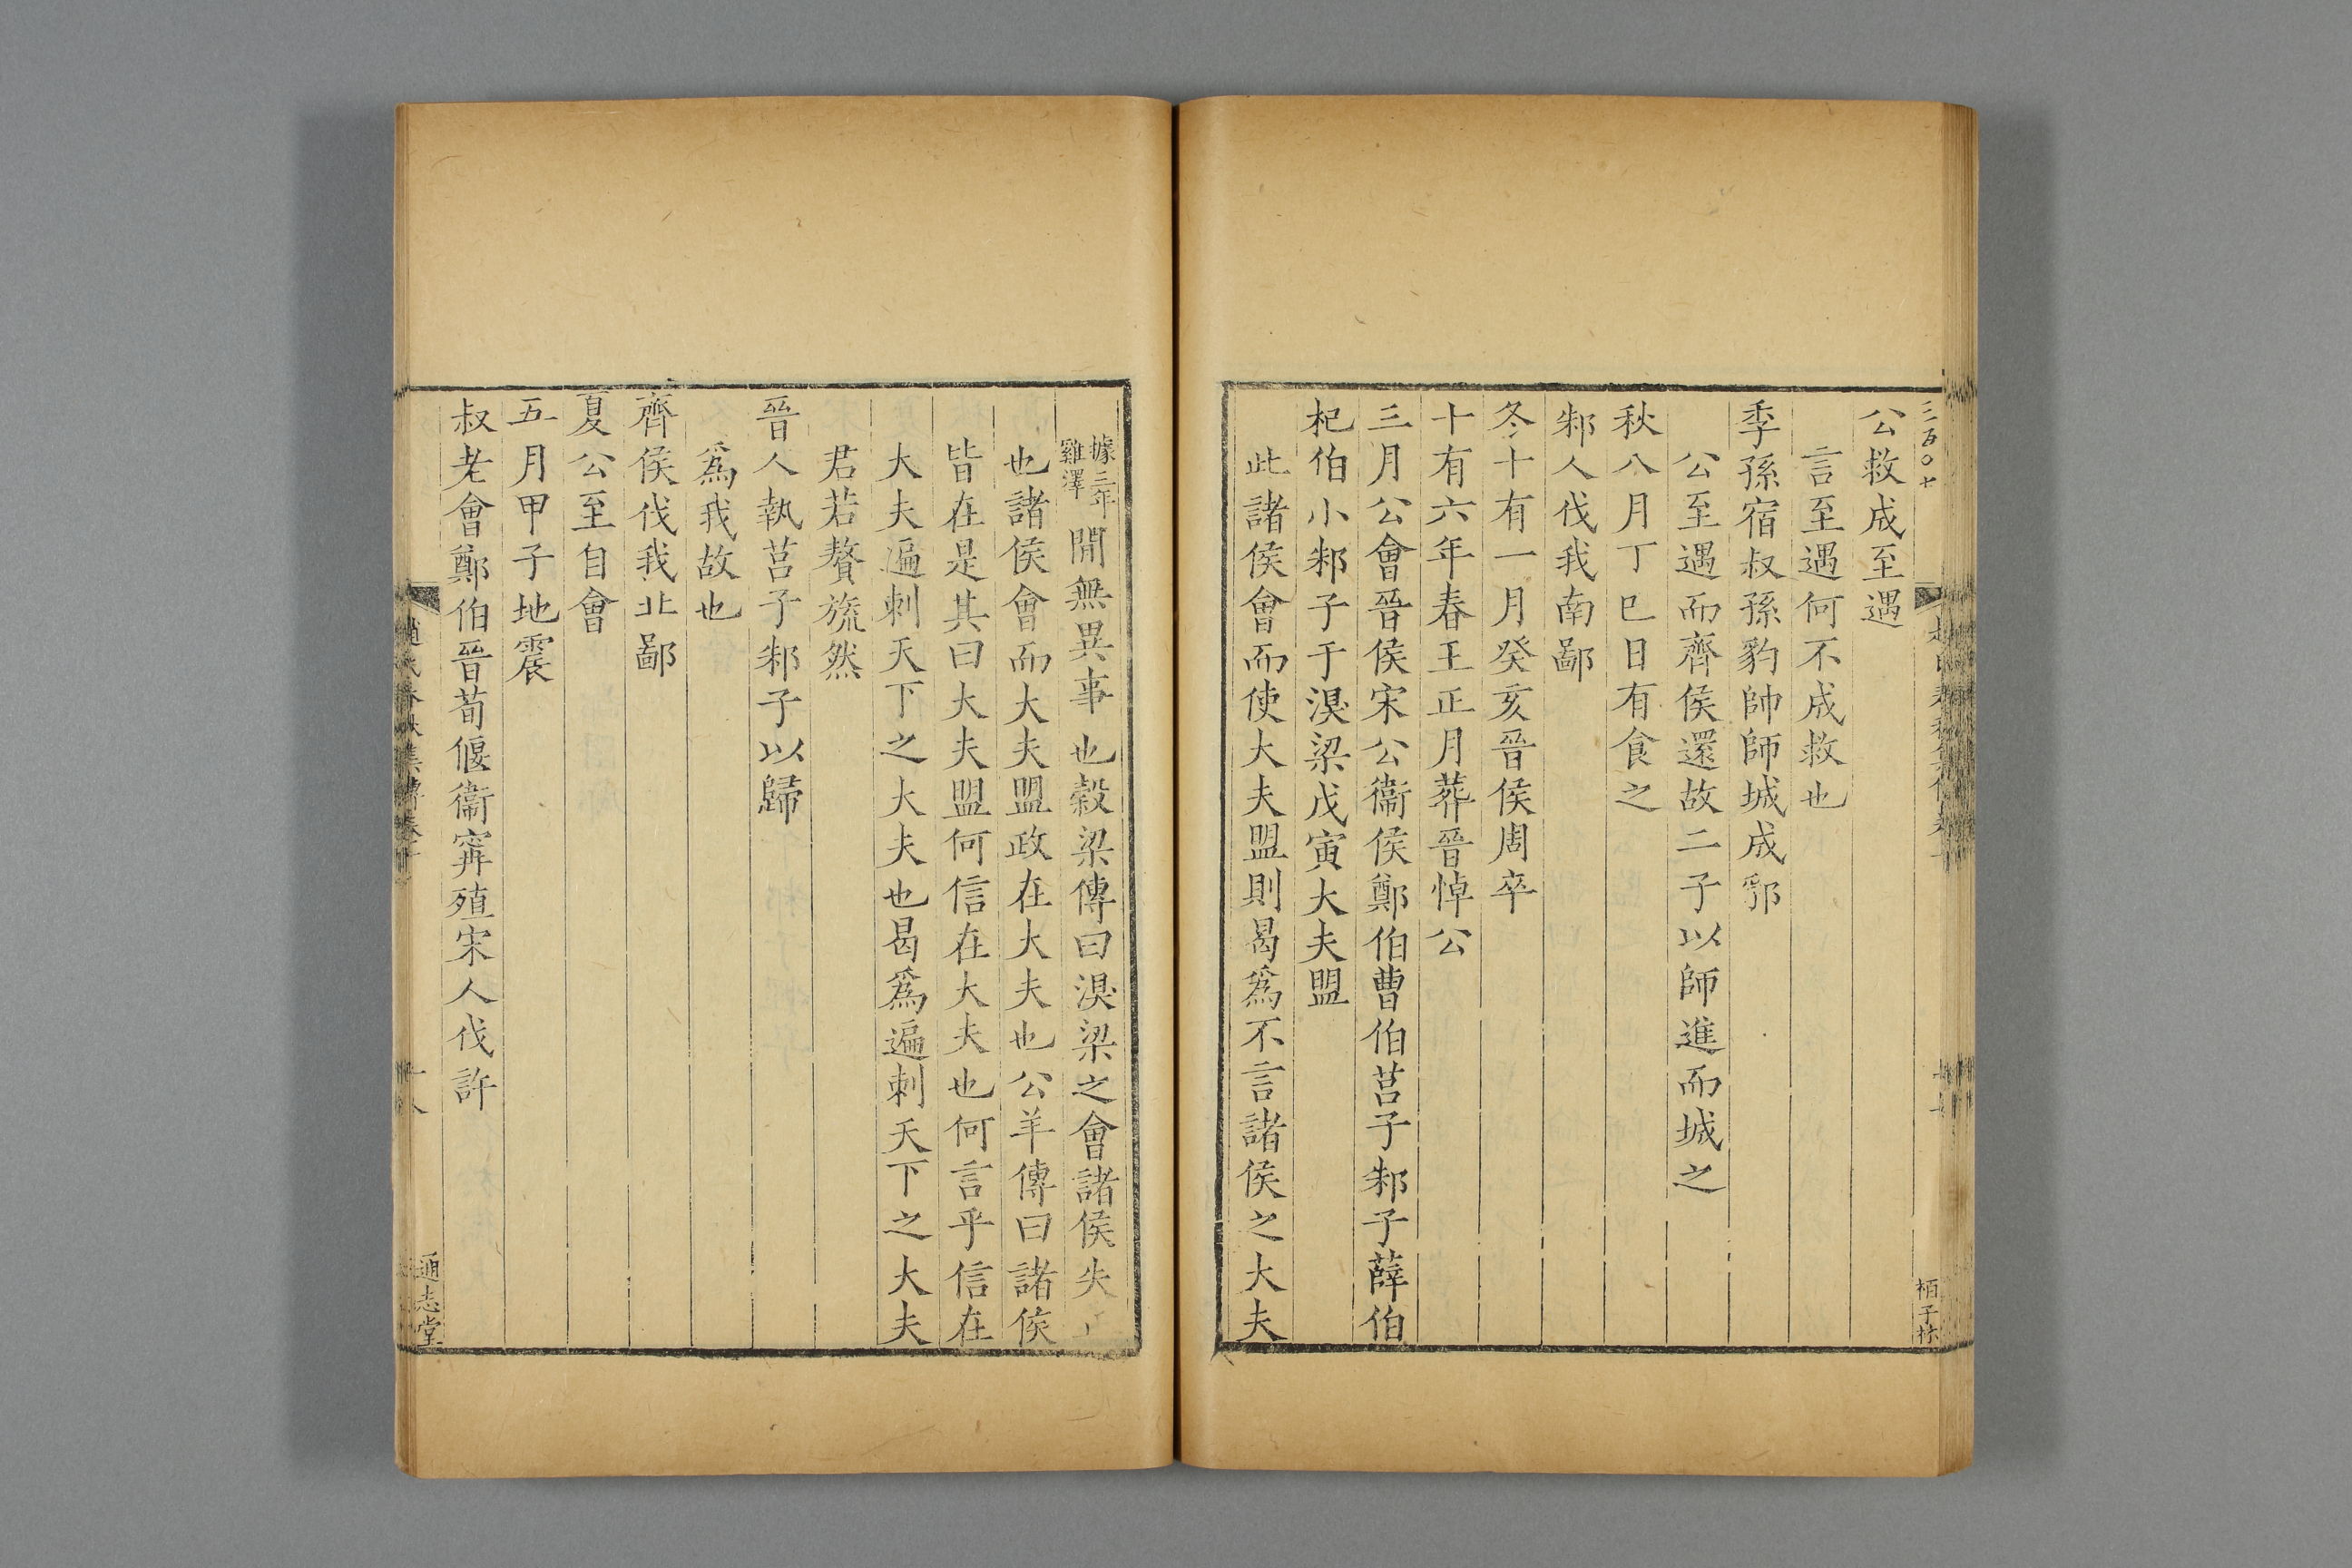 三百〇七
公救成至遇
言至遇何不成救也
季孫宿叔孫豹帥師城成郛
公至遇而齊侯還故二子以師進而城之
秋八月丁巳日有食之
邾人伐我南鄙
冬十有一月癸亥晉侯周卒
十有六年春王正月葬晉悼公
三月公會晉侯宋公衞侯鄭伯曹伯莒子邾子薛伯
杞伯小邾子于湨梁戊寅大夫盟
此諸侯會而使大夫盟則曷爲不言諸侯之大夫
據三年
雞澤
閒無異事也穀梁傳曰湨梁之會諸侯失
也諸侯會而大夫盟政在大夫也公羊傳曰諸侯
皆在是其曰大夫盟何信在大夫也何言乎信在
大夫遍刺天下之大夫也曷爲遍刺天下之大夫
君若贅旒然
晉人執莒子邾子以歸
爲我故也
齊侯伐我北鄙
夏公至自會
五月甲子地震
叔老會鄭伯晉荀偃衞甯殖宋人伐許
趙氏春秋集傳卷十
十八
通志堂